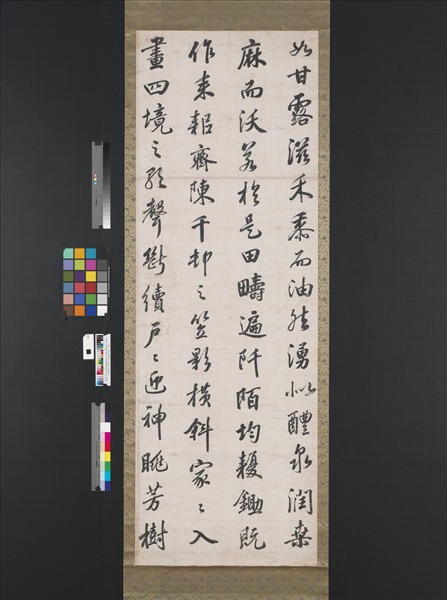 如甘露滋禾黍而油然湧似醴泉潤桑
麻而沃若於是田疇遍阡陌均耰鋤既
作耒耜齊陳千邨之笠影橫斜家々入
畫四境之歌聲斷續戶々迎神眺芳樹